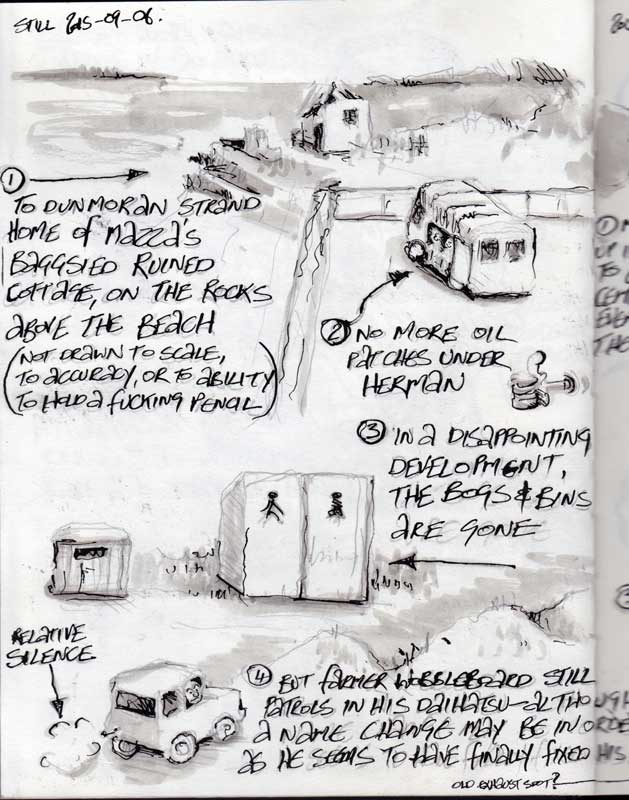 STILL 2015-09-06.
1
TO DUNMORAN STRAND
HOME OF MAZZA'S
BAGGSIED RUINED
COTTAGE, ON THE ROCKS
ABOVE THE BEACH
(NOT DRAWN TO SCALE,
TO ACCURACY, OR TO ABILITY
TO HOLD A FUCKING PENCIL)
2 NO MORE OIL
PATCHES UNDER
HERMAN
3 IN A DISAPPOINTING
DEVELOPMENT,
THE BOGS & BINS
ARE GONE
RELATIVE
SILENCE
4 BUT FARMER WOBBLEBOARD STILL
PATROLS IN HIS DAIHATSU - ALTHOUGH
A NAME CHANGE MAY BE IN ORDER
AS HE SEEMS TO HAVE FINALLY FIXED HIS
OLD EXHAUST SPOT?